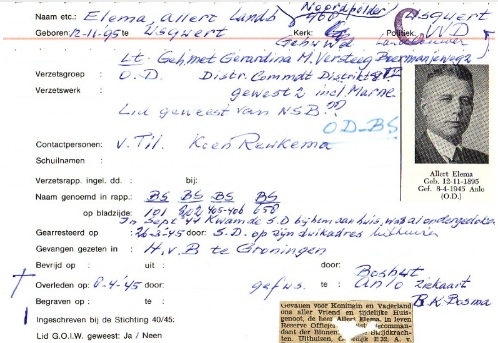 Naam etc.: Elema, Allert Landb Noordpolder 400 Usquert
Geboren: 12-11-95 te Usquert Kerk: Politiek: ND
Gehuwd Landbouwer
Lt. Geh. met Gerardina M. Versteeg
Verzetsgroep O.D. Distr. Commdt Distrikt
Verzetswerk gewest 2 incl. Marne
Lid geweest van NSB??
OD-BS
Contactpersonen: v. Til. Koen Reukema
Schuilnaam :
Verzetsrapp. ingel. dd. : bij:
Naam genoemd in rapp.: BS BS BS BS
op bladzijde: 101 202 405-406 650
In Sept 44 Kwam de S.D bij hem aan huis, was al ondergedoken
Gearresteerd op : 26-3-45 door: S.D. op zijn duikadres Uithuizen
Gevangen gezeten in : H.v.B te Groningen
Bevrijd op : uit : door:
Overleden op : 8-4-45 door: gefus. te Anlo
Boshut
ziekaart
B.K. Bosma
Begraven op : te :
Ingeschreven bij de Stichting 40/45:
Lid G.O.I.W. geweest: Ja / Neen
Allert Elema
Geb. 12-11-1895
Gef. 8-4-1945 Anlo
(O.D.)
Gevallen voor Koningin en Vaderland
ons aller Vriend en tijdelijke Huis-
genoot, de heer Allert Elema, in leven
Reserve Officier
dant der Binnen
ten. Uithuizen,